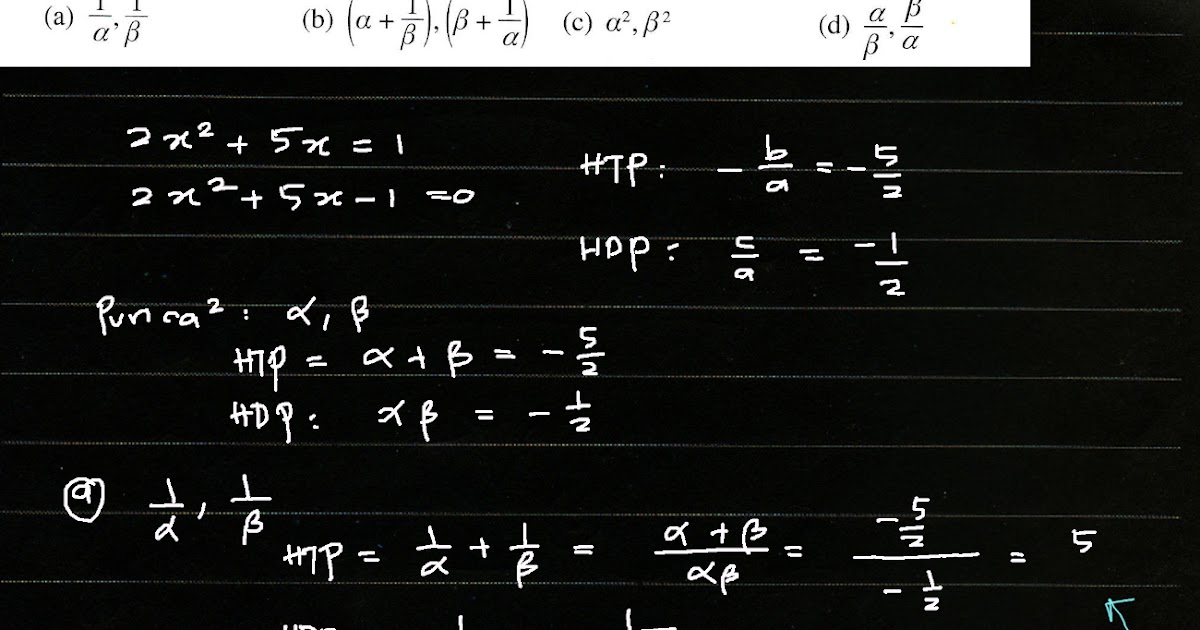 (a) 1/α, 1/β (b) (α + 1/β), (β + 1/α) (c) α², β² (d) α/β, β/α
2x² + 5x = 1
2x² + 5x - 1 = 0
HTP: - b/a = - 5/2
HDP: c/a = -1/2
Punca²: α, β
HTP = α + β = - 5/2
HDP: αβ = - 1/2
(a) 1/α, 1/β
HTP = 1/α + 1/β = (α + β)/(αβ) = (- 5/2)/(- 1/2) = 5